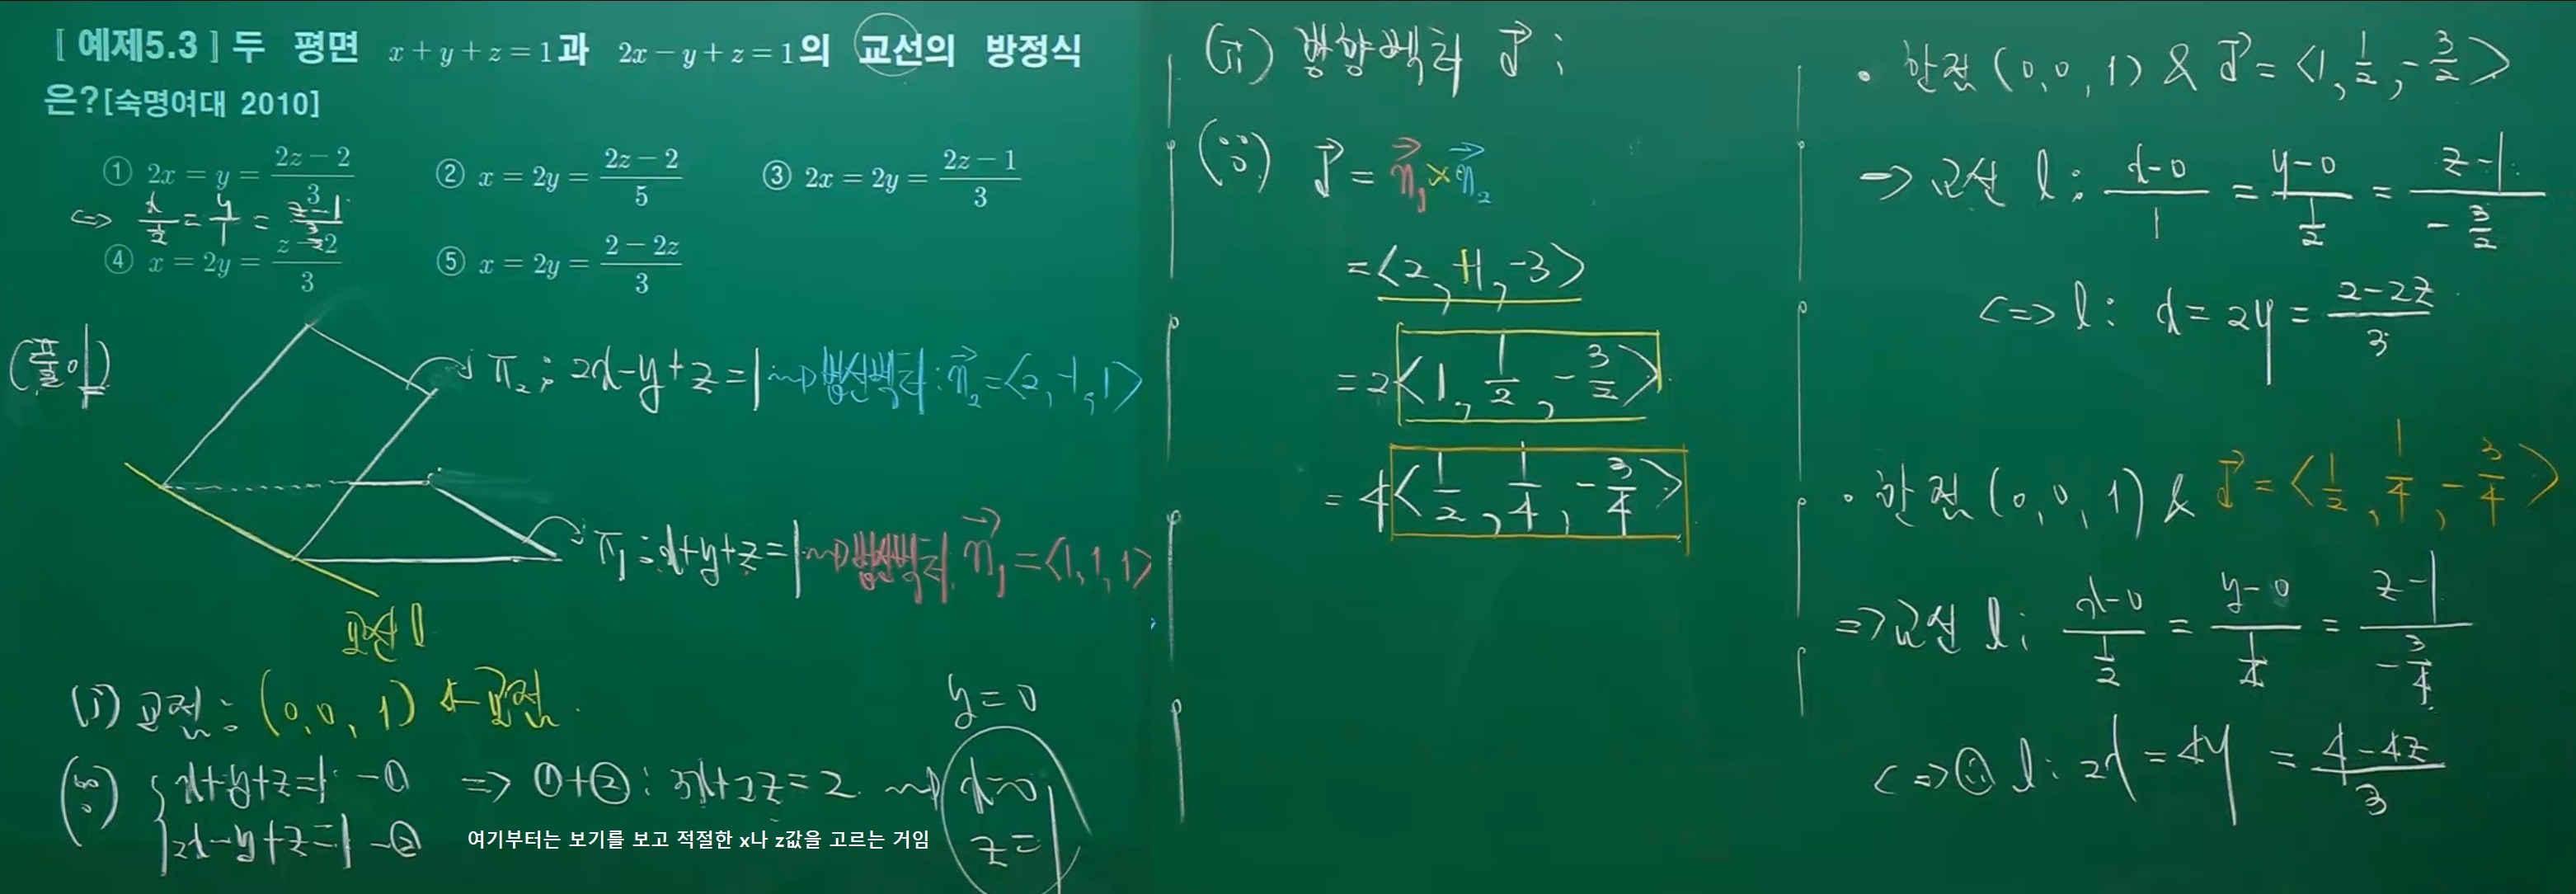 [ 예제5.3 ] 두 평면 x + y + z = 1과 2x − y + z = 1의 교선의 방정식
은?[숙명여대 2010]
① 2x = y = (2z − 2)/3 ② x = 2y = (2z − 2)/5 ③ 2x = 2y = (2z − 1)/3
⇔ x/(1/2) = y/1 = (z−1)/(3/2)
④ x = 2y = (z − 2)/3 ⑤ x = 2y = (2 − 2z)/3
(풀이)
π₂ : 2x−y+z=1 ⇝ 법선벡터 : n₂ = <2, −1, 1>
π₁ : x+y+z=1 ⇝ 법선벡터 : n₁ = <1, 1, 1>
교선 l
(i) 교점 : (0, 0, 1) ← 교점
(∵) { x+y+z=1 −① ⇒ ①+② : 3x+2z=2 ⇝ y=0
2x−y+z=1 −② x=0
여기부터는 보기를 보고 적절한 x나 z값을 고르는 거임
z=1
(ii) 방향벡터 d :
(∵) d = n₁ × n₂
= <2, +1, −3>
= 2<1, 1/2, −3/2>
= 4<1/2, 1/4, −3/4>
• 한점 (0, 0, 1) & d = <1, 1/2, −3/2>
→ 교선 l : (x−0)/1 = (y−0)/(1/2) = (z−1)/(−3/2)
⇔ l : x = 2y = (2−2z)/3
• 한점 (0, 0, 1) & d = <1/2, 1/4, −3/4>
⇒ 교선 l : (x−0)/(1/2) = (y−0)/(1/4) = (z−1)/(−3/4)
⇔ l : 2x = 4y = (4−4z)/3